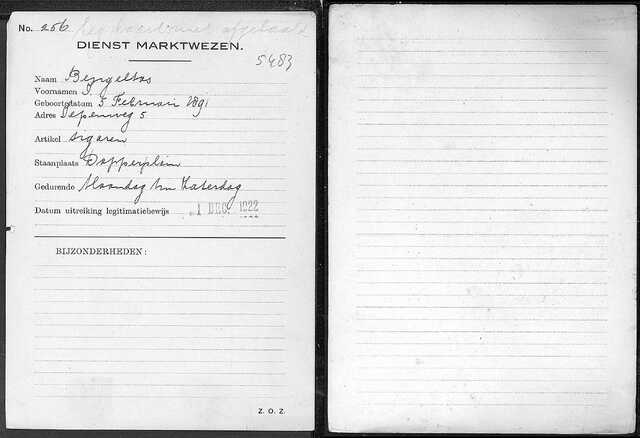 No. 256
DIENST MARKTWEZEN.
5483
Naam
Voornamen S.
Geboortedatum 5 Februari 1891
Adres 5
Artikel sigaren
Staanplaats Dapperplein
Gedurende Maandag t/m Zaterdag
Datum uitreiking legitimatiebewijs 1 DEC. 1922
BIJZONDERHEDEN:
Z. O. Z.